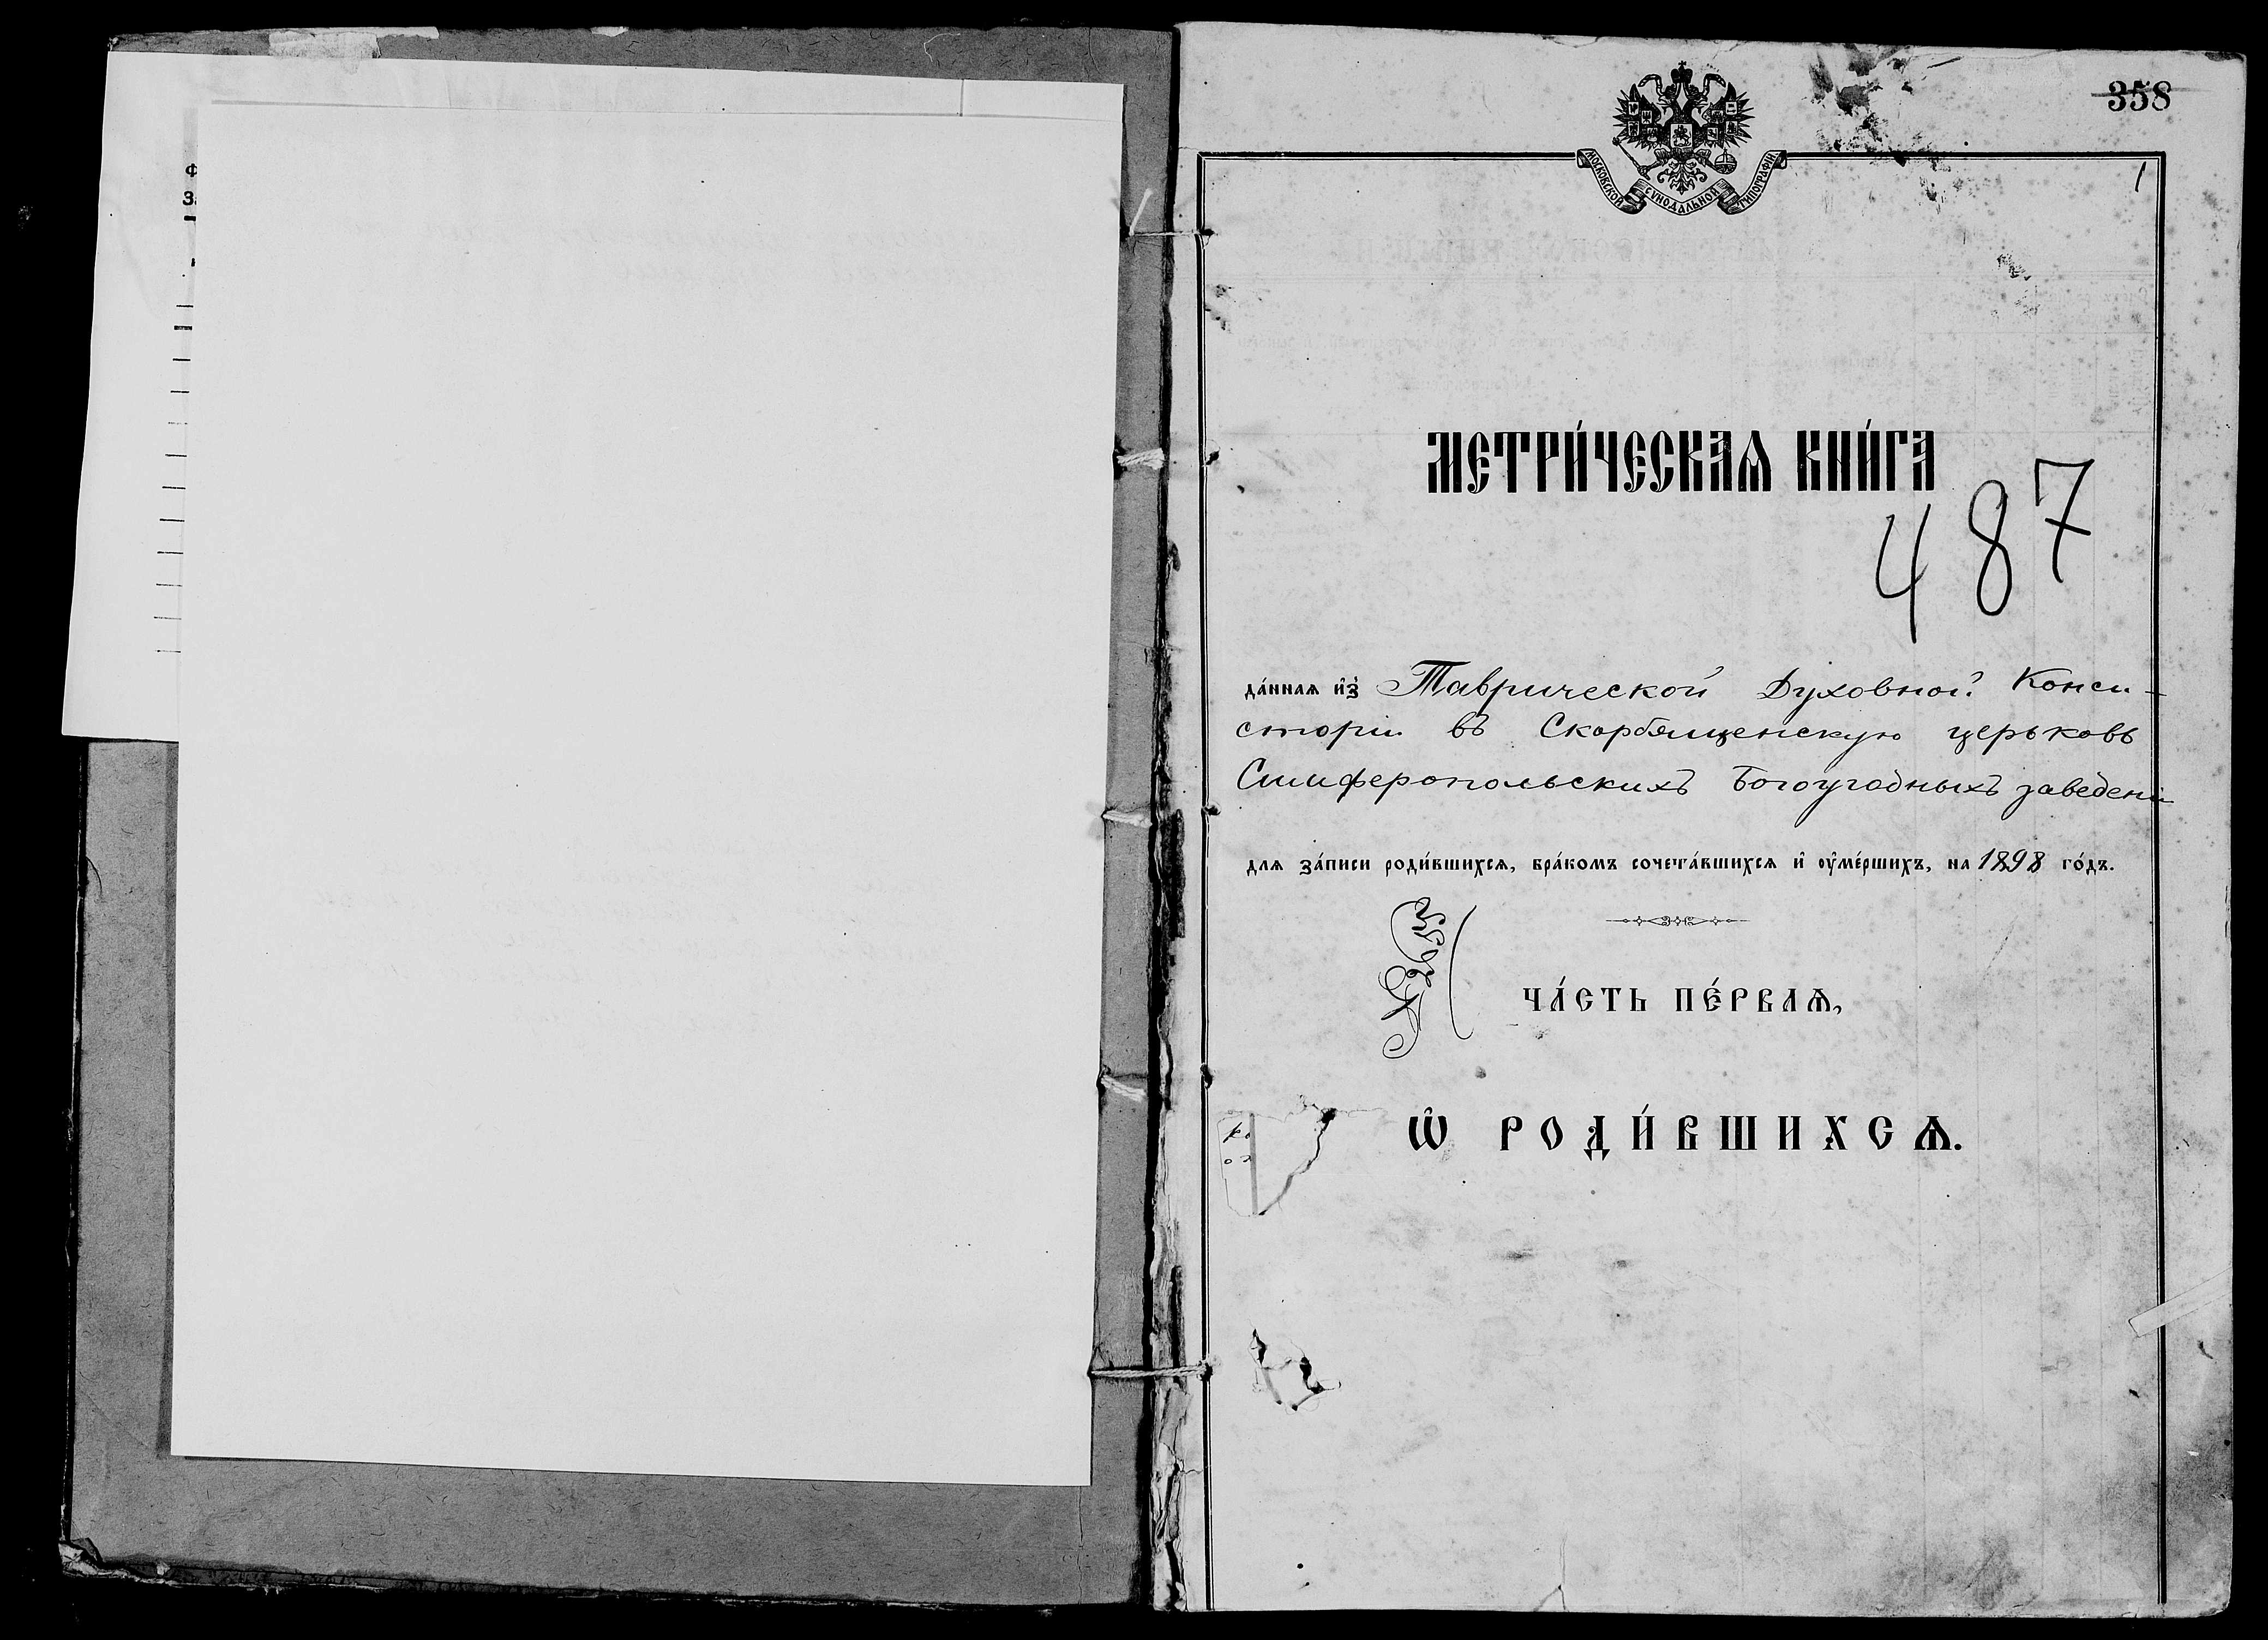 Ф
З
358
1
МОСКОВСКОЙ СѴНОДАЛЬНОЙ ТИПОГРАФІИ
МЕТРИ́ЧЕСКАѦ КНИ́ГА
487
да́ннаѧ и҆з̾ Таврической Духовной Конси-
сторіи въ Скорбященскую церьковь
Симферопольскихъ Богоугодныхъ заведені
длѧ за́писи роди́вшихсѧ, бра́комъ сочета́вшихсѧ и҆ оу҆ме́ршихъ, на 1898 го́дъ.
ЧА́СТЬ ПЕ́РВАѦ,
Ѡ҆ РОДИ́ВШИХСѦ.